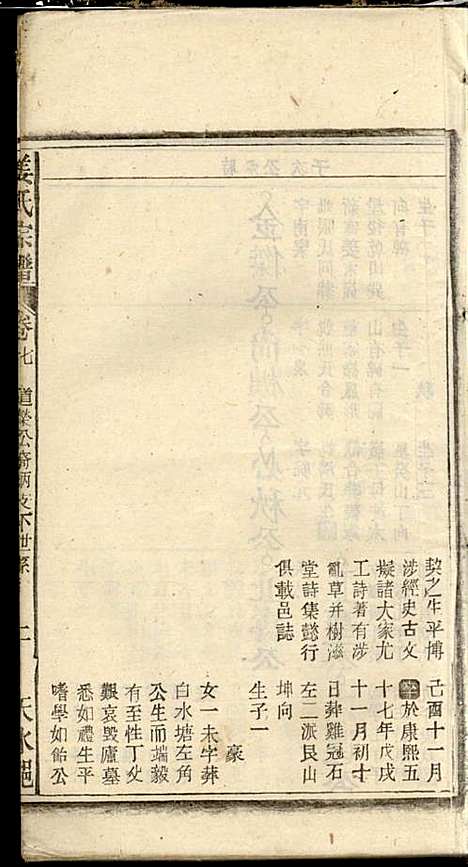 契之生平博
涉經史古文
擬諸大家尤
工詩著有涉
亂草并樹滋
堂詩集懿行
俱載邑誌
己酉十一月
卒於康熙五
十七年戊戌
十一月初十
日葬雞冠石
左二派艮山
坤向
生子一
豪
女一未字葬
白水塘左角
公生而端毅
有至性丁父
艱哀毀廬墓
悉如禮生平
嗜學如飴公
姜氏宗譜
卷七
支下世系
二
天水